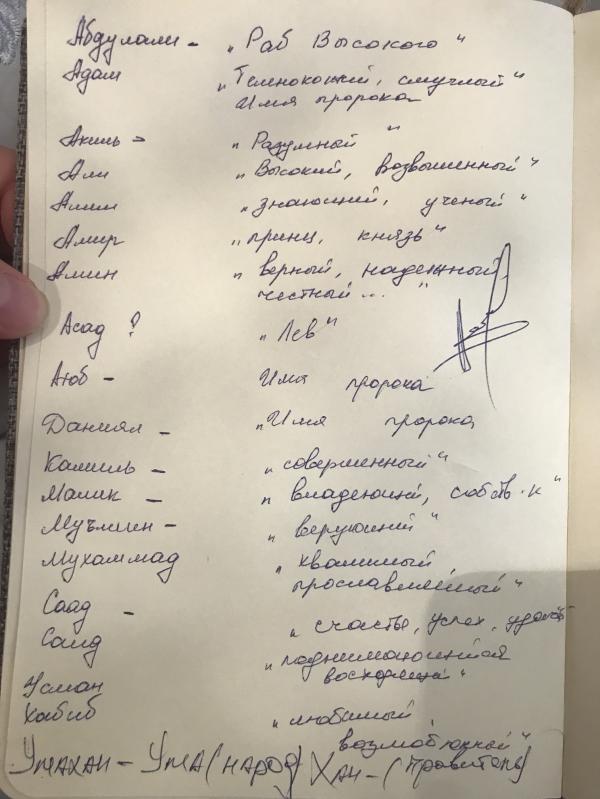 Абдулали - „Раб Высокого"
Адам „Темнокожий, смуглый"
Имя пророка
Акиль - „Разумный"
Али „Высокий, возвышенный"
Алим „знающий, ученый"
Амир „принц, князь"
Амин „верный, надежный,
честный..."
Асад ? „Лев"
Аюб - Имя пророка
Даниял - „Имя пророка
Камиль - „совершенный"
Малик - „владеющий, собств.к"
Муъмин - „верующий"
Мухаммад „хвалимый
прославляемый"
Саад - „счастье, успех, удача"
Саид „поднимающийся
восходящий"
Усман
Хабиб „любимый,
возлюбленный"
Умахан - Ума (народ) Хан - (правитель)